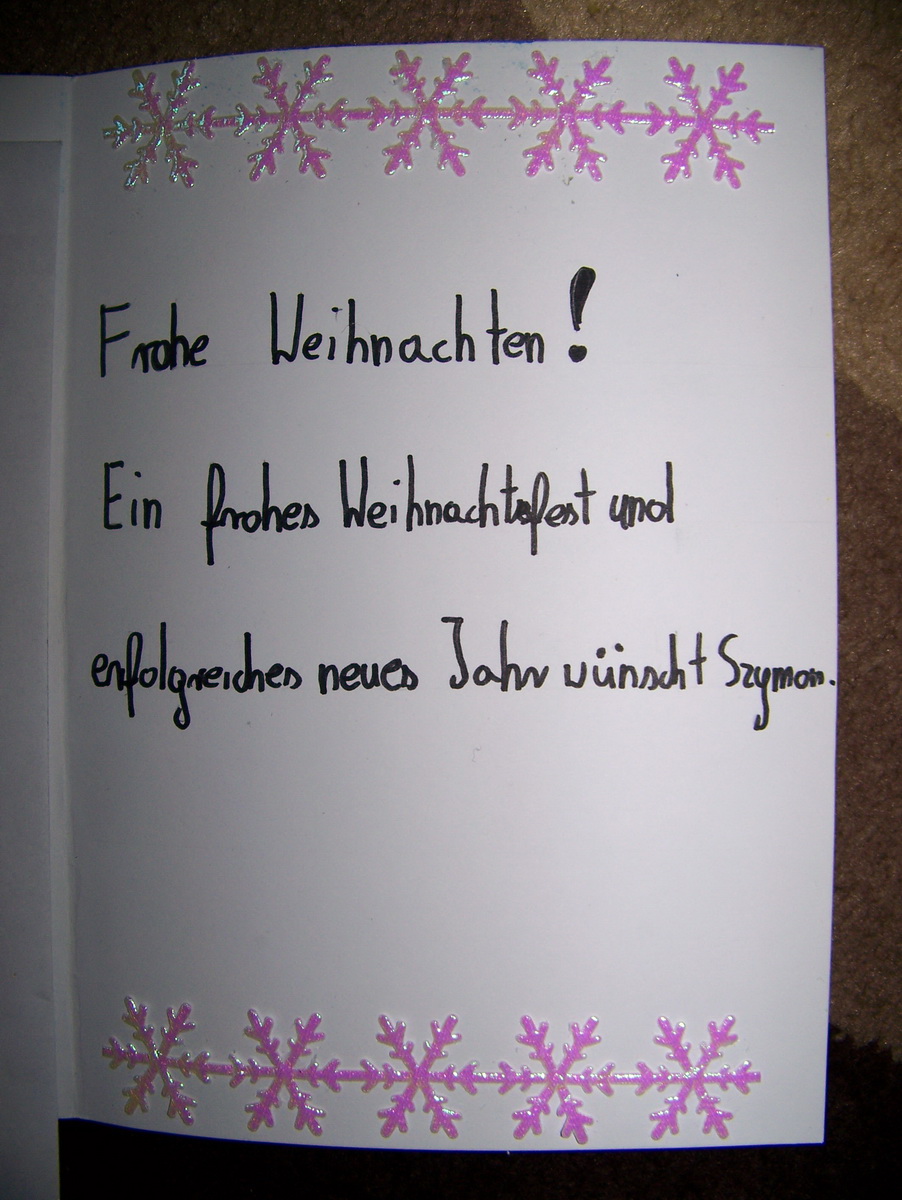 Frohe Weihnachten!
Ein frohes Weihnachtsfest und
erfolgreiches neues Jahr wünscht Szymon.